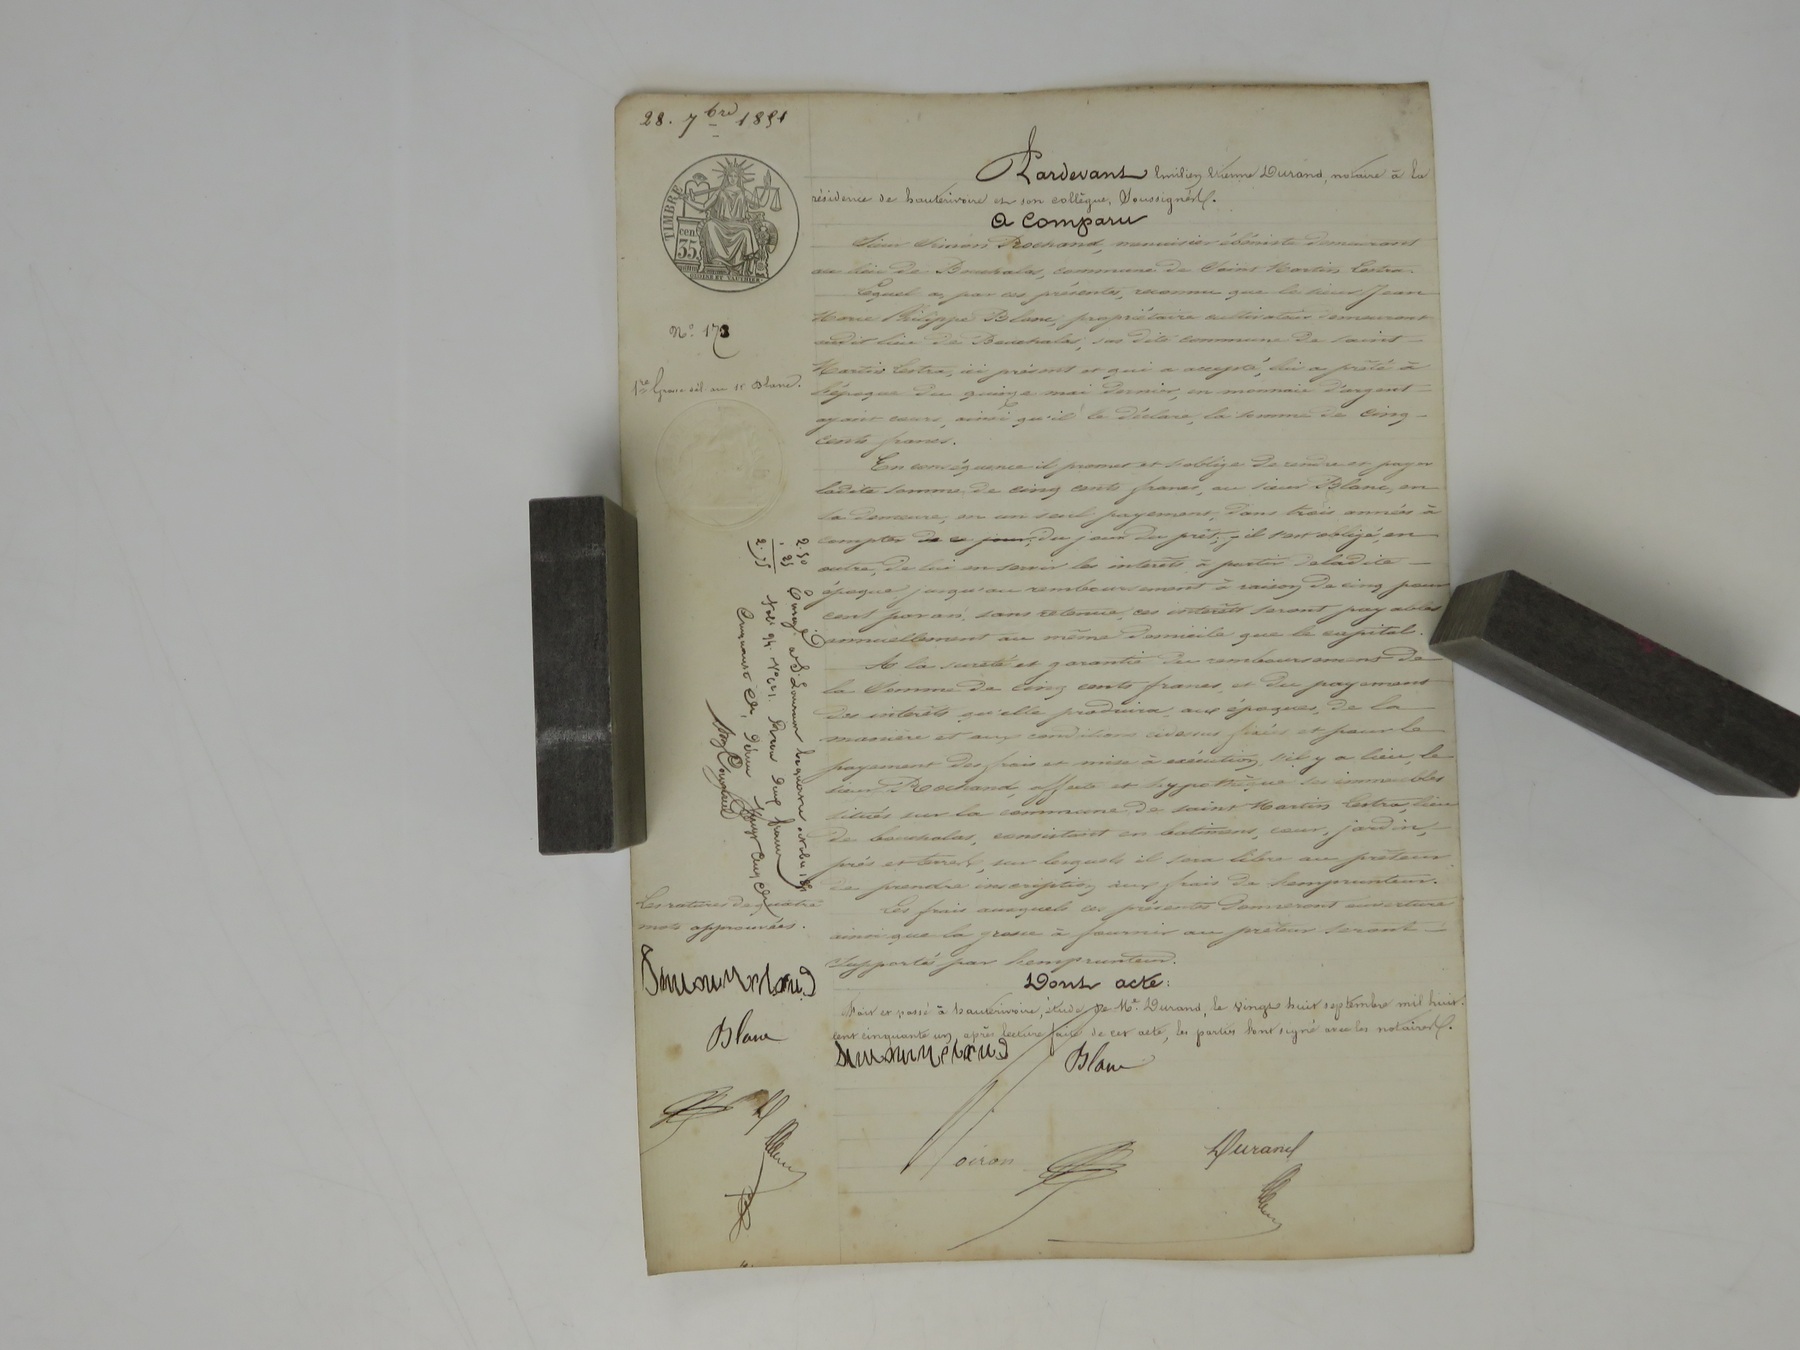 28. 7bre 1851
TIMBRE
cen.
35
Nº 173
1re Grosse dél. au sr Blanc.
Pardevant Emilien Etienne Durand, notaire à la
résidence de hauterivoire et son collègue, Soussignés.
A Comparu
Sieur Siméon Rochand, menuisier ébéniste demeurant
au lieu de Bouchalas, commune de Saint Martin Lestra.
Lequel a, par ces présentes, reconnu que le sieur Jean
Marie Philippe Blanc, propriétaire cultivateur demeurant
audit lieu de Bouchalas, sus dite commune de saint
Martin Lestra, ici présent et qui a accepté, lui a prêté à
l'époque du quinze mai dernier, en monnaie d'argent
ayant cours, ainsi qu'il le déclare, la somme de cinq
cents francs.
En conséquence il promet et s'oblige de rendre et payer
ladite somme de cinq cents francs, au sieur Blanc, en
sa demeure, en un seul payement, dans trois années à
compter de ce jour, du jour du prêt, il s'est obligé, en
outre, de lui en servir les intérêts à partir de ladite
époque jusqu'au remboursement à raison de cinq pour
cent par an, sans retenue, ces intérêts seront payables
annuellement au même domicile que le capital.
A la sureté et garantie du remboursement de
la Somme de cinq cents francs, et du payement
des intérêts qu'elle produira, aux époques, de la
manière et aux conditions cidessus fixées et pour le
payement des frais et mise à exécution, s'il y a lieu, le
sieur Rochand, affecte et hypothèque ses immeubles
situés sur la commune de saint Martin Lestra, lieu
de bouchalas, consistant en batiment, cour, jardin,
prés et terres, sur lesquels il sera libre au prêteur
de prendre inscription aux frais de l'emprunteur.
Les frais auxquels ces présentes donneront ouverture
ainsi que la grosse à fournir au prêteur seront
supportés par l'emprunteur.
Dont acte:
Fait et passé à hauterivoire, étude de Me. Durand, le vingt huit septembre mil huit
cent cinquante un, après lecture faite de cet acte, les parties l'ont signé avec les notaires.
Blanc
Durand
2.50
25
2.75
Les ratures de quatre
mots approuvées.
Blanc